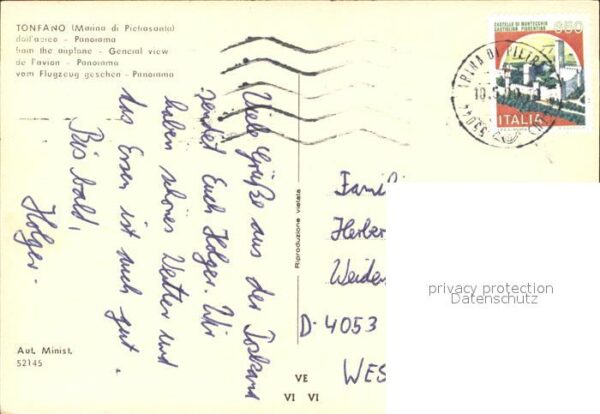 TONFANO (Marina di Pietrasanta)
dall'aereo - Panorama
from the airplane - General view
de l'avion - Panorama
vom Flugzeug gesehen - Panorama
Viele Grüße aus der Toskana
sendet Euch Holger. Wir
haben schönes Wetter und
das Essen ist auch gut.
Bis bald,
Holger.
Aut. Minist.
52145
Riproduzione vietata
VE
VI VI
CASTELLO DI MONTECCHIO
CASTIGLION FIORENTINO
350
ITALIA
Famili
Herber
Weiden
D-4053
WES
privacy protection
Datenschutz